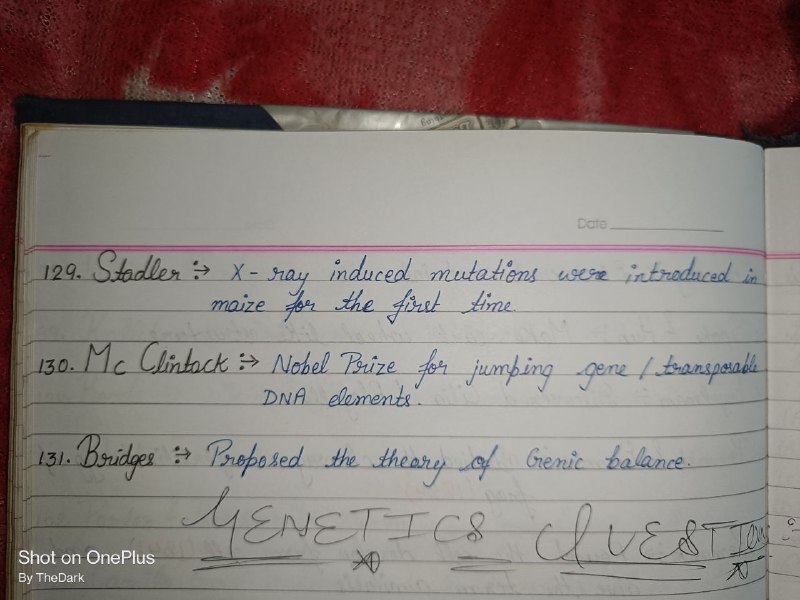 Date
129. Stadler :→ X-ray induced mutations were introduced in
maize for the first time.
130. Mc Clintock :→ Nobel Prize for jumping gene / transposable
DNA elements.
131. Bridges :→ Proposed the theory of Genic balance.
GENETICS QUESTIons
Shot on OnePlus
By TheDark